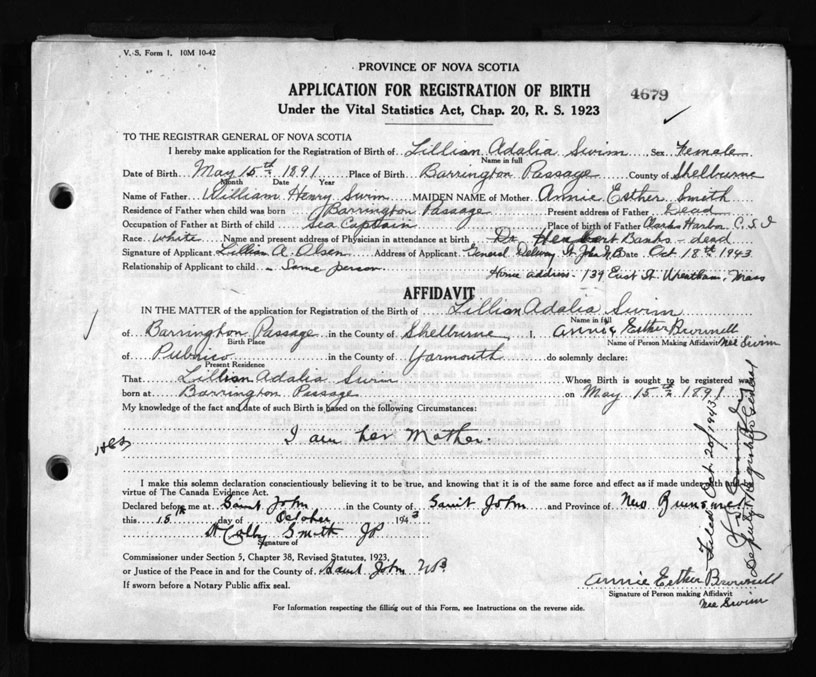 V. S. Form 1. 10M 10-42
PROVINCE OF NOVA SCOTIA
APPLICATION FOR REGISTRATION OF BIRTH
4679
Under the Vital Statistics Act, Chap. 20, R. S. 1923
TO THE REGISTRAR GENERAL OF NOVA SCOTIA
I hereby make application for the Registration of Birth of Lillian Adalia Swim Sex Female
Name in full
Date of Birth May 15th 1891 Place of Birth Barrington Passage County of Shelburne
Month Date Year
Name of Father William Henry Swim MAIDEN NAME of Mother Annie Esther Smith
Residence of Father when child was born Barrington Passage Present address of Father Dead
Occupation of Father at Birth of child Sea Captain Place of birth of Father Clarks Harbor C.S.I
Race White Name and present address of Physician in attendance at birth Dr Herbert Banks - dead
Signature of Applicant Lillian A. Olsen Address of Applicant General Delivery St John N.B Date Oct 18th 1943
Relationship of Applicant to child - Same person Home address - 139 East St. Wrentham, Mass
AFFIDAVIT
IN THE MATTER of the application for Registration of the Birth of Lillian Adalia Swim
Name in full
of Barrington Passage in the County of Shelburne I, Annie Esther Brownell
Birth Place Name of Person Making Affidavit nee Swim
of Pubnico in the County of Yarmouth do solemnly declare:
Present Residence
That Lillian Adalia Swim Whose Birth is sought to be registered was
born at Barrington Passage on May 15th 1891
My knowledge of the fact and date of such Birth is based on the following Circumstances:
I am her Mother.
I make this solemn declaration conscientiously believing it to be true, and knowing that it is of the same force and effect as if made under oath and by
virtue of The Canada Evidence Act.
Declared before me at Saint John in the County of Saint John and Province of New Brunswick
this 15th day of October 1943
Colby Smith JP
Signature of
Commissioner under Section 5, Chapter 38, Revised Statutes, 1923,
or Justice of the Peace in and for the County of Saint John NB
If sworn before a Notary Public affix seal.
Annie Esther Brownell
Signature of Person making Affidavit
nee Swim
For Information respecting the filling out of this Form, see Instructions on the reverse side.
Filed Oct 20/1943
Deputy Registrar General